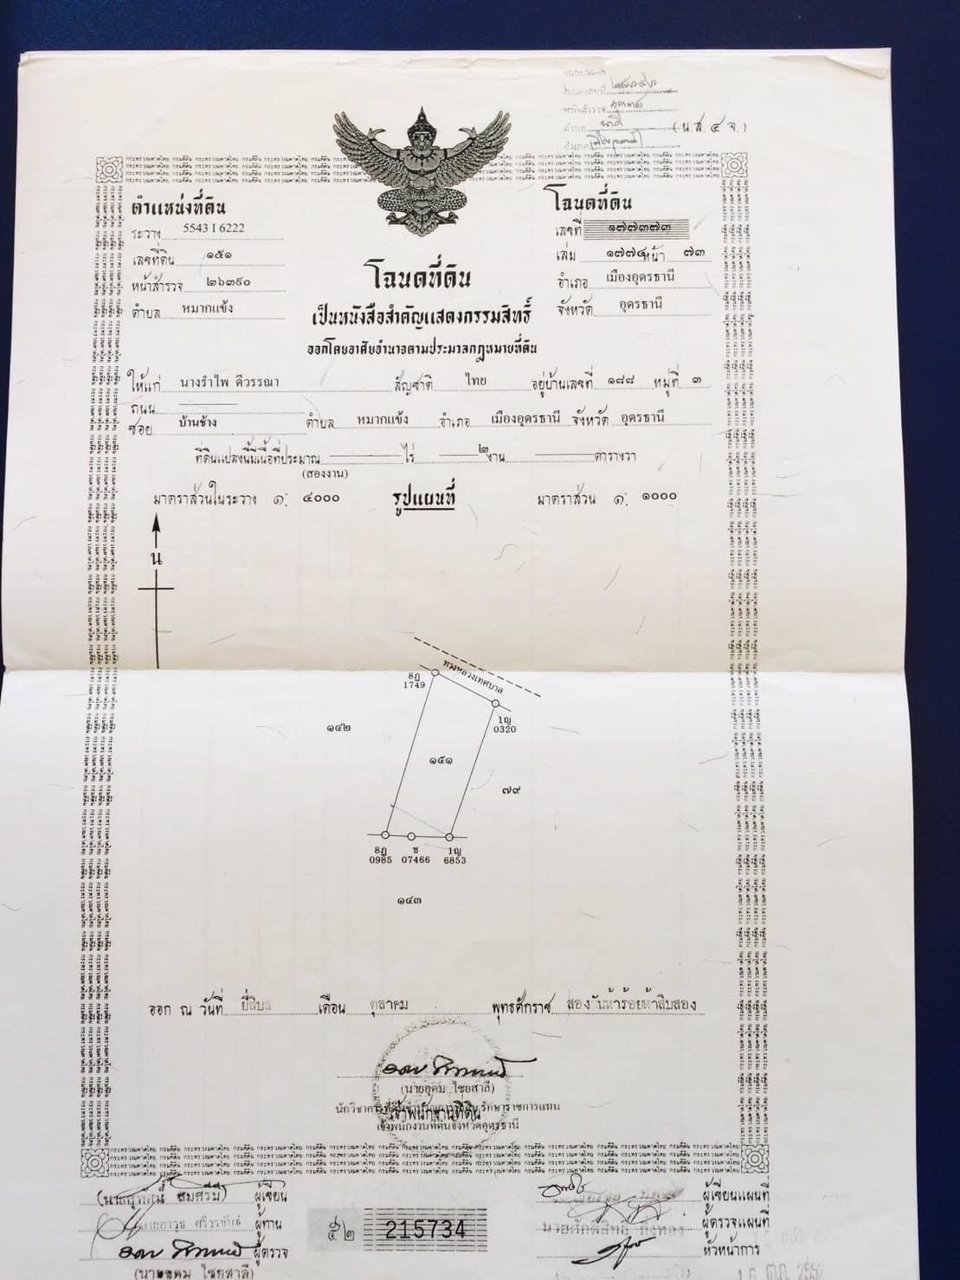 (น.ส.๔ จ.)
ตำแหน่งที่ดิน
ระวาง 5543 I 6222
เลขที่ดิน ๑๕๑
หน้าสำรวจ ๒๖๓๙๐
ตำบล หมากแข้ง
โฉนดที่ดิน
เลขที่ ๑๗๗๓๗๓
เล่ม ๑๗๗๔ หน้า ๗๓
อำเภอ เมืองอุดรธานี
จังหวัด อุดรธานี
โฉนดที่ดิน
เป็นหนังสือสำคัญแสดงกรรมสิทธิ์
ออกโดยอาศัยอำนาจตามประมวลกฎหมายที่ดิน
ให้แก่ นางรำไพ ดีวรรณา สัญชาติ ไทย อยู่บ้านเลขที่ ๑๘๘ หมู่ที่ ๓
ถนน
ซอย บ้านช้าง ตำบล หมากแข้ง อำเภอ เมืองอุดรธานี จังหวัด อุดรธานี
ที่ดินแปลงนี้มีเนื้อที่ประมาณ ไร่ ๒ งาน ตารางวา
(สองงาน)
มาตราส่วนในระวาง ๑: ๔๐๐๐ รูปแผนที่ มาตราส่วน ๑: ๑๐๐๐
น
ทางหลวงเทศบาล
8ฎ
1749
1ญ
0320
๑๔๒
๑๕๑
๗๙
8ฎ ช 1ญ
0985 07466 6853
๑๔๓
ออก ณ วันที่ ยี่สิบ เดือน ตุลาคม พุทธศักราช สองพันห้าร้อยห้าสิบสอง
(นายอุดม ไชยสาลี)
นักวิชาการที่ดินชำนาญการพิเศษ รักษาราชการแทน
เจ้าพนักงานที่ดิน
เจ้าพนักงานที่ดินจังหวัดอุดรธานี
ผู้เขียน
ผู้ทาน
ผู้ตรวจ
(นายอุดม ไชยสาลี)
๕๒ 215734
ผู้เขียนแผนที่
ผู้ตรวจแผนที่
หัวหน้าการ